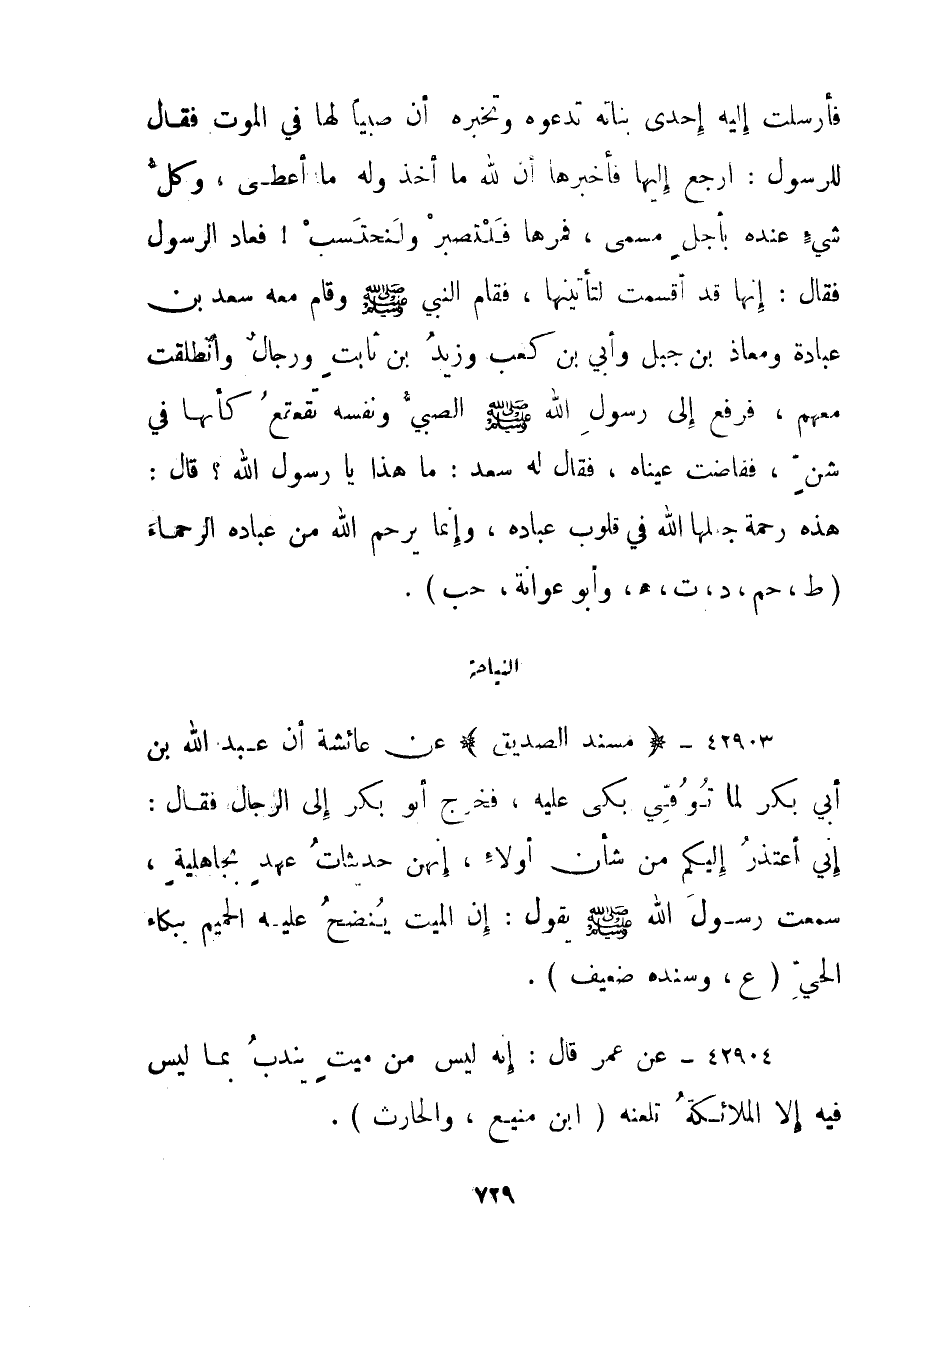 فأرسلت إليه إحدى بناته تدعوه وتخبره أن صبياً لها في الموت فقال
للرسول : ارجع إليها فأخبرها أن لله ما أخذ وله ما أعطى ، وكلُّ
شيءٍ عنده بأجلٍ مسمى ، فمرها فَلْتصبرْ ولَنحتَسبْ ! فعاد الرسول
فقال : إنها قد أقسمت لتأتينها ، فقام النبي ﷺ وقام معه سعد بن
عبادة ومعاذ بن جبل وأبي بن كعب وزيدُ بن ثابتٍ ورجالٌ وانطلقت
معهم ، فرفع إلى رسولِ الله ﷺ الصبيُّ ونفسه تقعقعُ كأنها في
شنٍّ ، ففاضت عيناه ، فقال له سعد : ما هذا يا رسول الله ؟ قال :
هذه رحمة جعلها الله في قلوب عباده ، وإنما يرحم الله من عباده الرحماءَ
( ط ، حم ، د ، ت ، ه ، وأبو عوانة ، حب ) .
النياحة
٤٢٩٠٣ ـ ﴿ مسند الصديق ﴾ عن عائشة أن عبد الله بن
أبي بكر لما تُوُفِّي بكى عليه ، فخرج أبو بكر إلى الرجال فقال :
إني أعتذرُ إليكم من شأن أولاءِ ، إنهن حديثاتُ عهدٍ بجاهليةٍ ،
سمعت رسولَ الله ﷺ يقول : إن الميت يُنضحُ عليه الحميم ببكاء
الحيِّ ( ع ، وسنده ضعيف ) .
٤٢٩٠٤ ـ عن عمر قال : إنه ليس من ميتٍ يندبُ بما ليس
فيه إلا الملائكةُ تلعنه ( ابن منيع ، والحارث ) .
٧٢٩